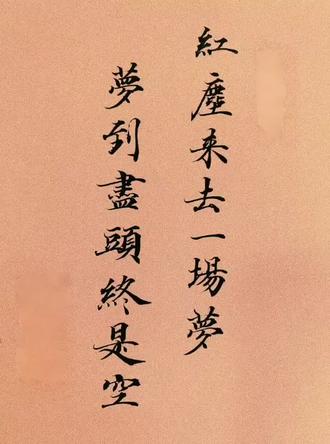 紅塵来去一場夢
夢到盡頭終是空